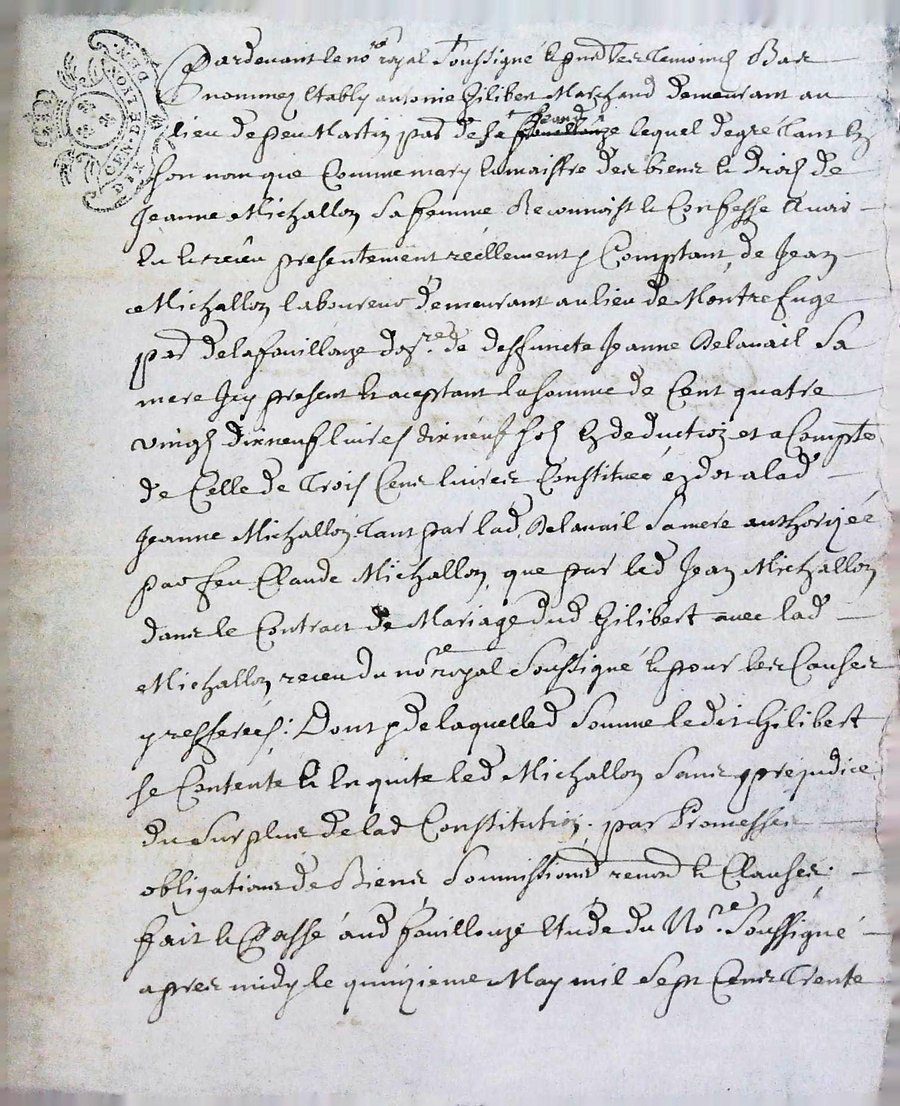 DEN. DE LYON. DIX CEN.
Pardevant le no.re royal Soussigné et presd les temoins Bas
nommes Etably antonie Gilibert Marchand demeurant au
lieu de peu Martin par de St Jeand lequel de gré tant En
son nom que Comme mary et maistre des biens et Droits de
Jeanne Michallon Sa femme Reconnoist et Confesse Avoir
Eu et receu presentement réellement et Comptant de Jean
Michallon laboureur demeurant au lieu de Montrefuge
par de la fouillouze de desfuncte Jeanne Delavail Sa
mere Icy present et aceptant la somme de Cent quatre
vingt dixneuf livres dixneuf sols En deduction et a Compte
de Celle de Trois Cens livres Constituée en dot a lad
Jeanne Michallon tant par lad Delavail Sa mere authorizée
par feu Claude Michallon, que par led Jean Michallon
dans le Contract de Mariage dud Gilibert avec lad
Michallon receu du no.re royal Soussigné et pour les Causes
y reſferées: Dont et de laquelled Somme ledit Gilibert
se Contente et En quite led Michallon Sans prejudice
du Surplus de lad Constitution. par Promesses
obligations de Biens Soumissions renond et Clauses.
fait et Passé aud fouillouze Etude du No.re Soussigné
apres midy le quinzieme May mil Sept Cens Trente